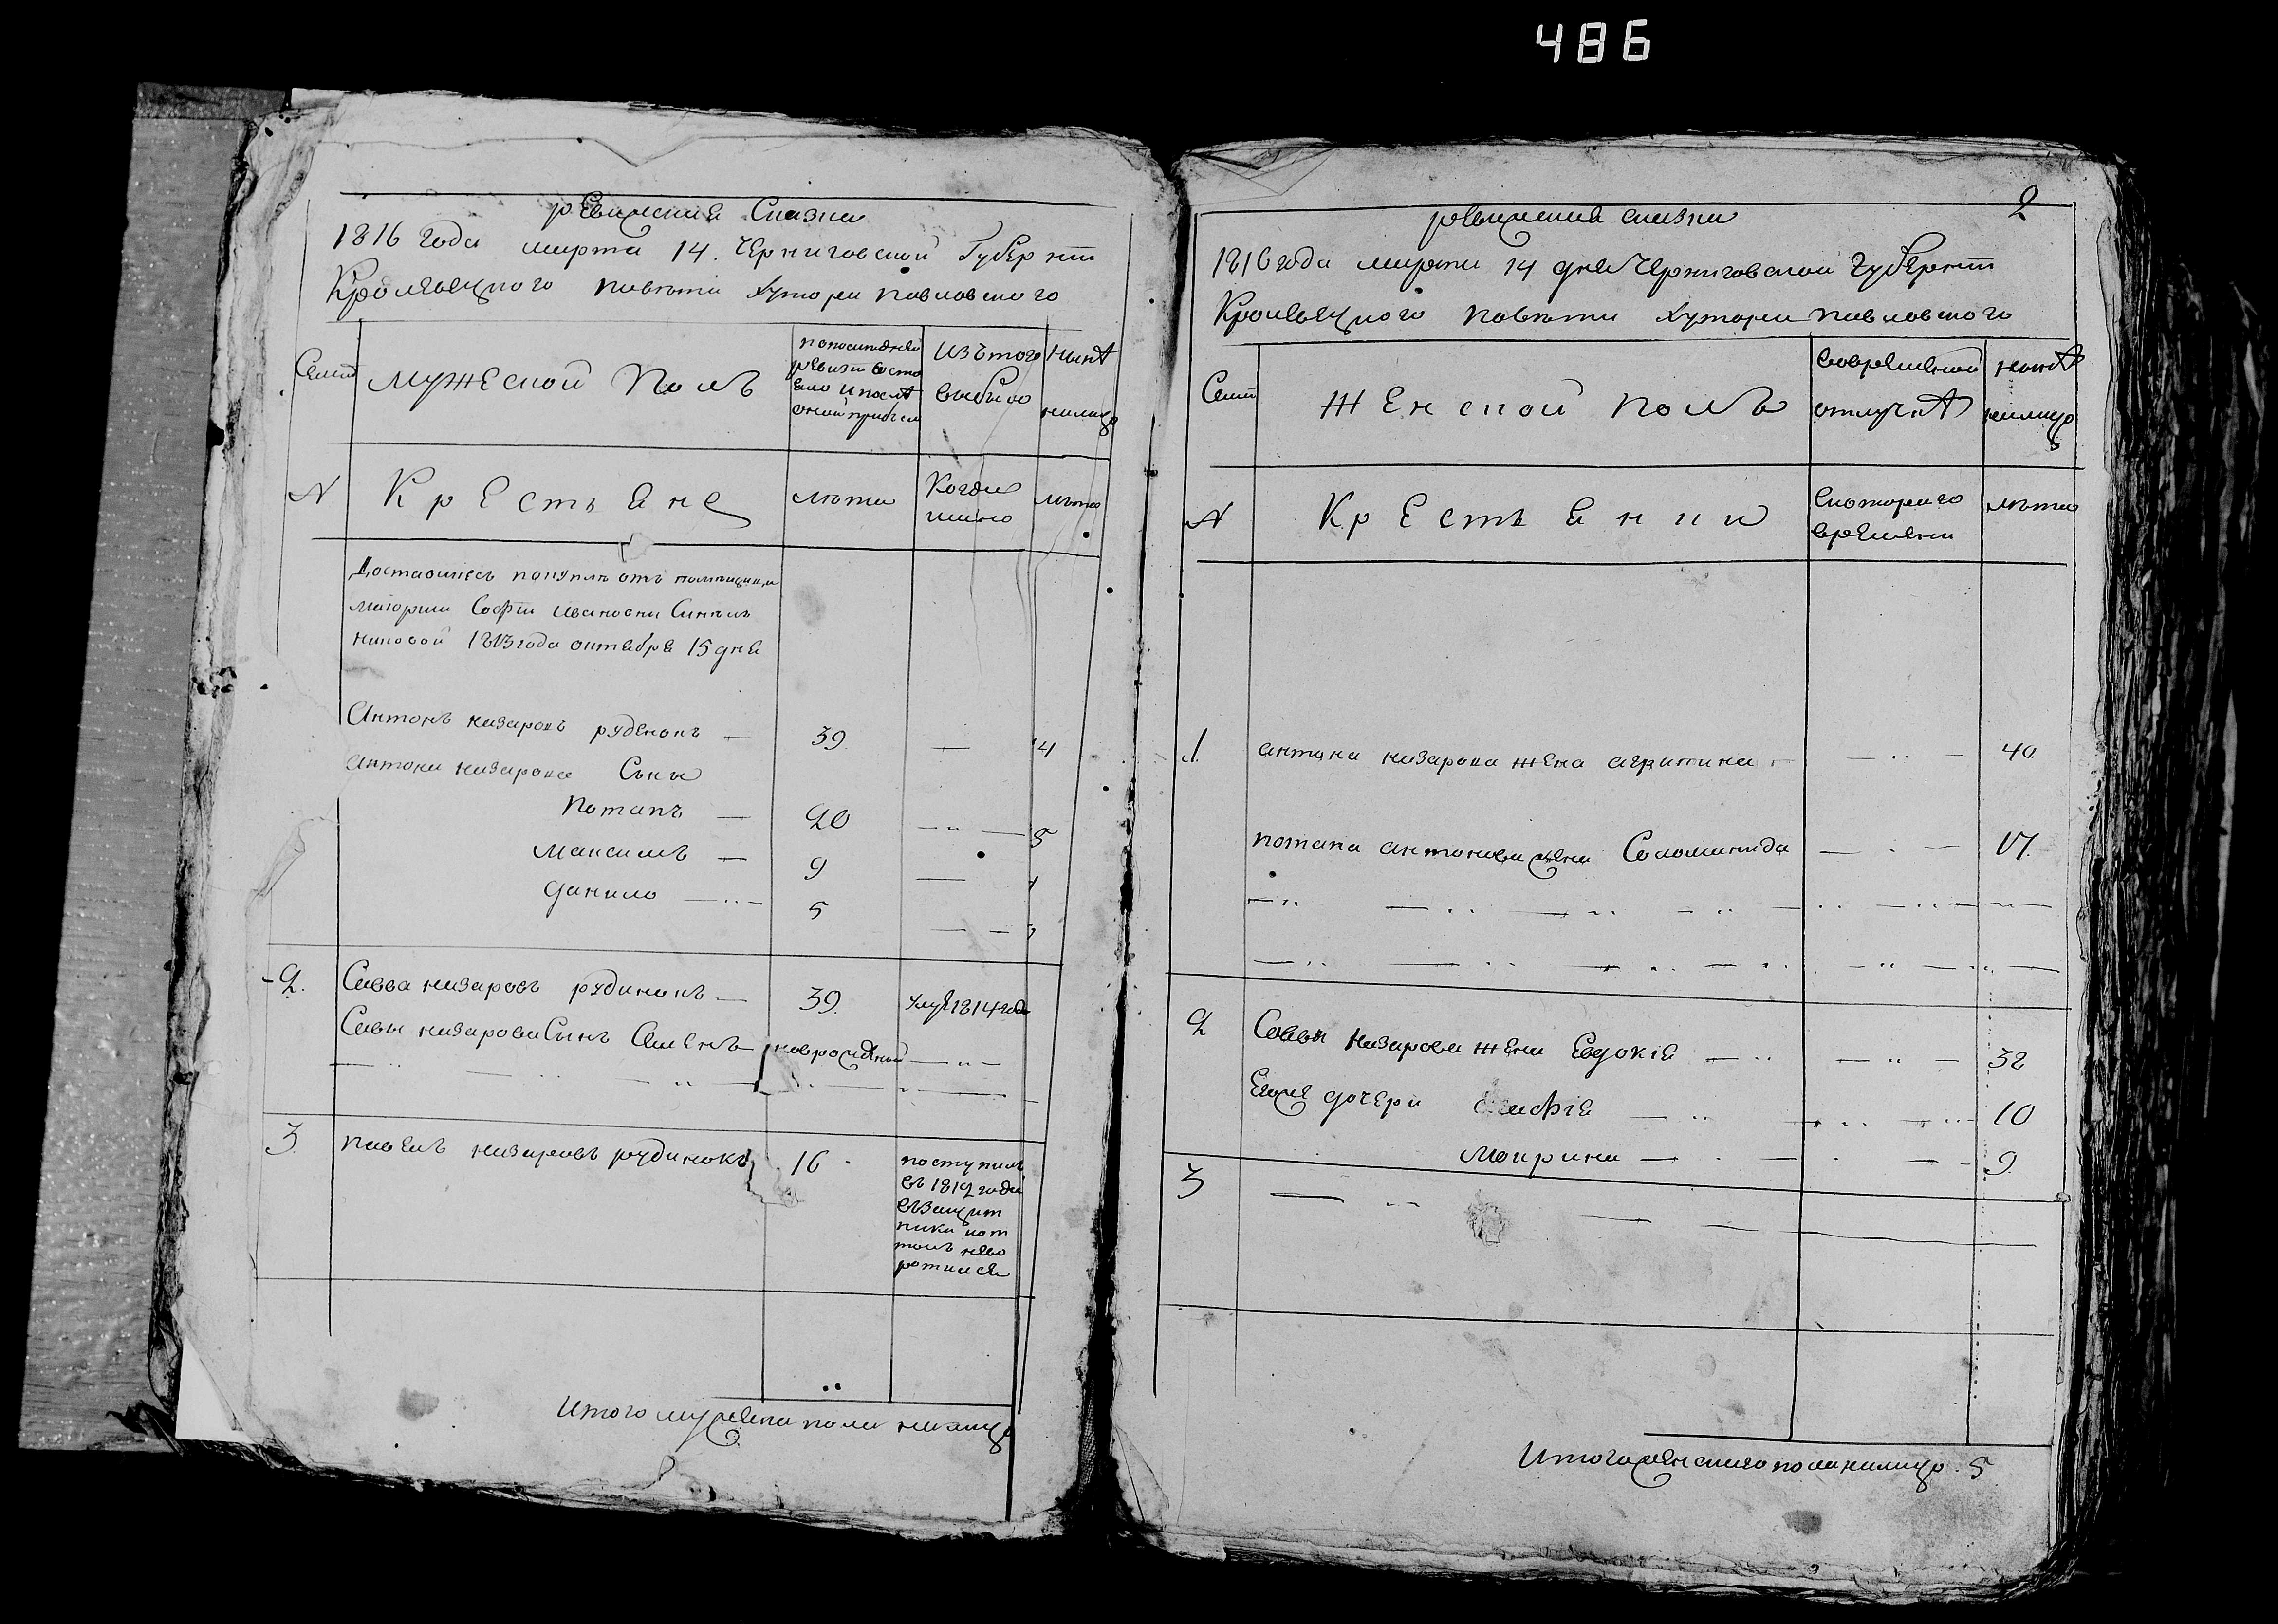 486
ревизская Сказка
1816 года марта 14. Черниговской Губернии
Кролевецкого повета хутора павловского
Семи
мужеской полъ
попоследней
ревизии состо
яло и после
оной прибыло
изътого
выбыло
ныне
налицо
N
Крестьяне
лета
Когда
имяно
лета
Доставшиеся покупкою отъ помещицы
маиорши Софии Ивановни Синель
никовой 1813 года октября 15 дня
Антонъ назаровъ руденокъ — 39. — 4
антона назарова Сыны
Потапъ — 20 — „ — 5
Максимъ — 9 — 1
данило — „ — 5 — —
2. Савва назаровъ рудинокъ — 39. умре 1814 года
Савы назарова Сынъ Семенъ — новорожденный — „ —
3 павелъ назаровъ рудинокъ 16
поступилъ
въ 1812 годе
въ защит
ники и от
толь нево
ротился
Итого мужеска пола налицо
2
ревизская сказка
1816 года марта 14 дня Черниговской губернии
Кролевецкого повета хутора павловского
Семи
женской полъ
вовременной
отлучке
ныне
налицо
N
Крестьянки
Скоторого
времени
лета
1. антона назарова жена агрипина — „ — 40
потапа антонова жена Соломинида — „ — 17.
2 Саввы назарова жена Евдокия — „ — „ — 32
Ево же дочери агафия — „ 10
Маврина — 9.
3
Итого женскаго пола налицо. 5